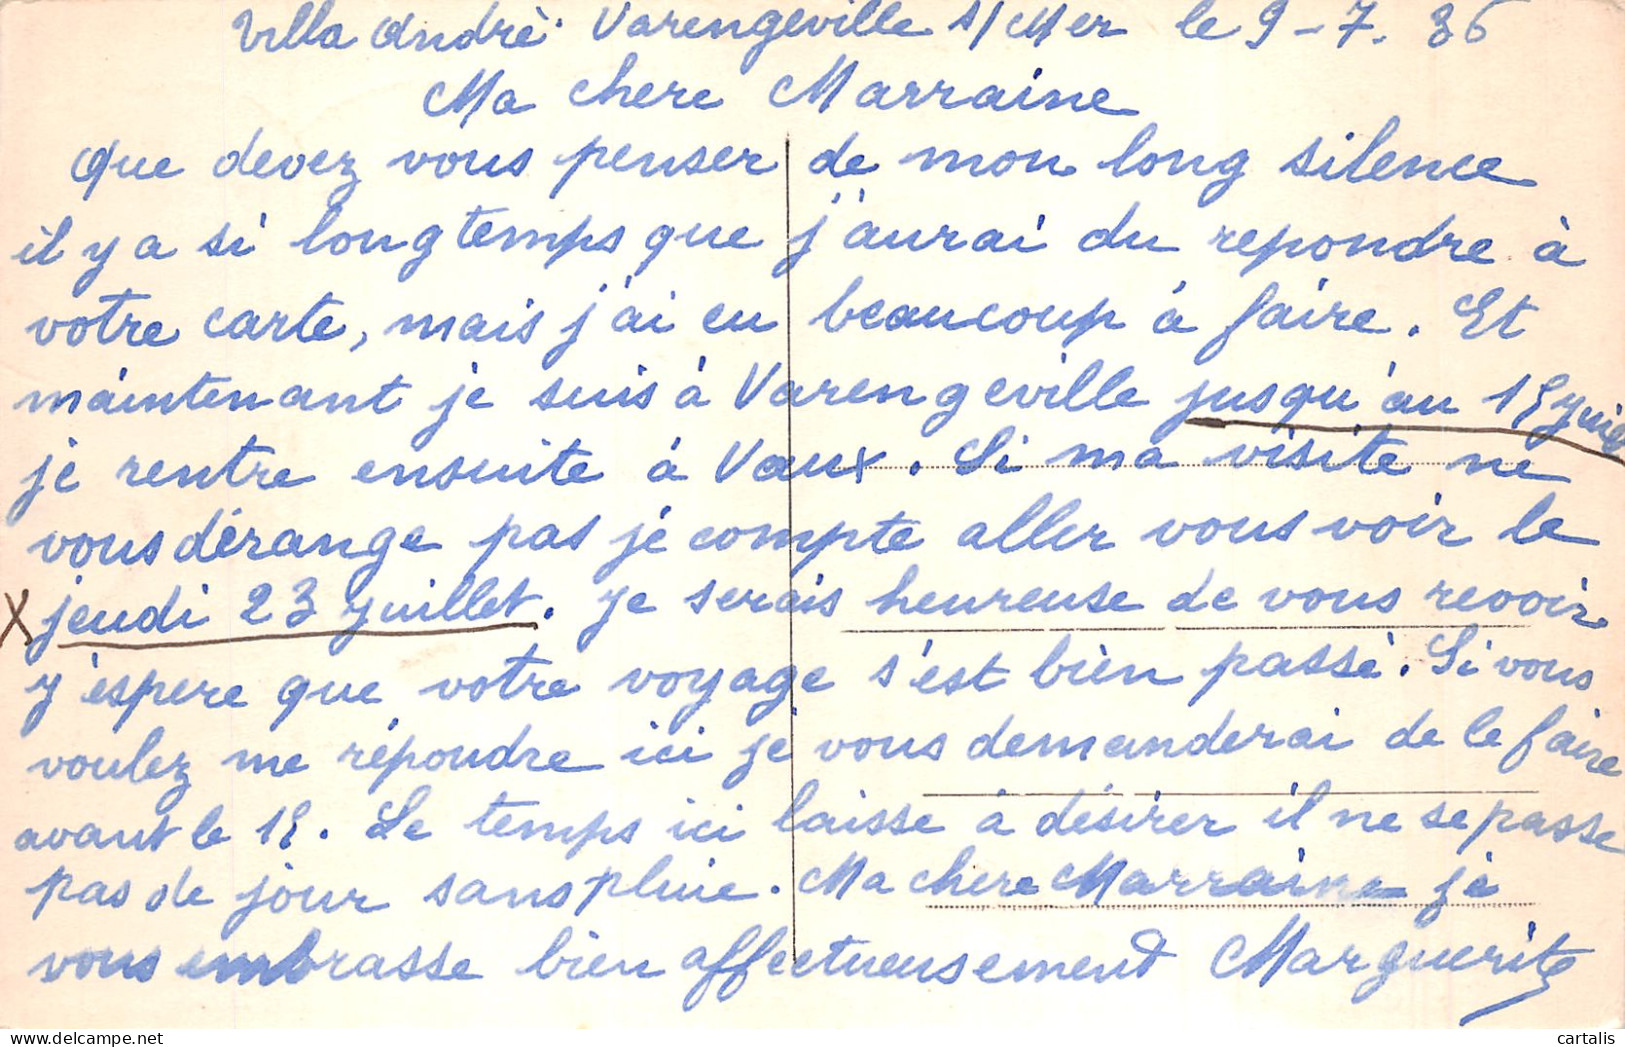 Villa André. Varengeville s/ Mer le 9-7. 36
Ma chere Marraine
Que devez vous penser de mon long silence
il y a si longtemps que j'aurai du repondre à
votre carte, mais j'ai eu beaucoup à faire. Et
maintenant je suis à Varengeville jusqu'au 15 juil
je rentre ensuite à Vaux. Si ma visite ne
vous dérange pas je compte aller vous voir le
X jeudi 23 juillet. Je serais heureuse de vous revoir
J'espere que votre voyage s'est bien passé. Si vous
voulez me répondre ici je vous demanderai de le faire
avant le 15. Le temps ici laisse à désirer il ne se passe
pas de jour sans pluie. Ma chere Marraine je
vous embrasse bien affectueusement Marguerite
cartalis
delcampe.net